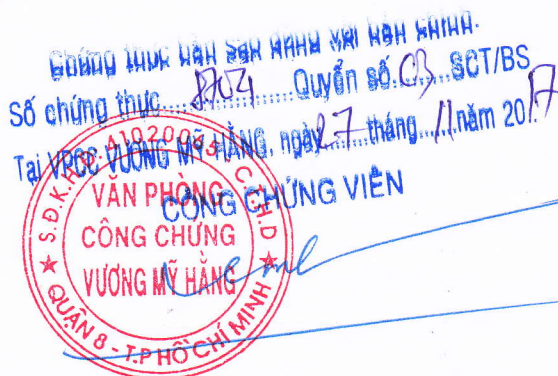 Chứng thực bản sao đúng với bản chính.
Số chứng thực.........Quyển số.03.....SCT/BS
Tại VPCC VƯƠNG MỸ HẰNG, ngày 27 tháng 11 năm 2017
CÔNG CHỨNG VIÊN
VĂN PHÒNG
CÔNG CHỨNG
VƯƠNG MỸ HẰNG
QUẬN 8 - T.P HỒ CHÍ MINH